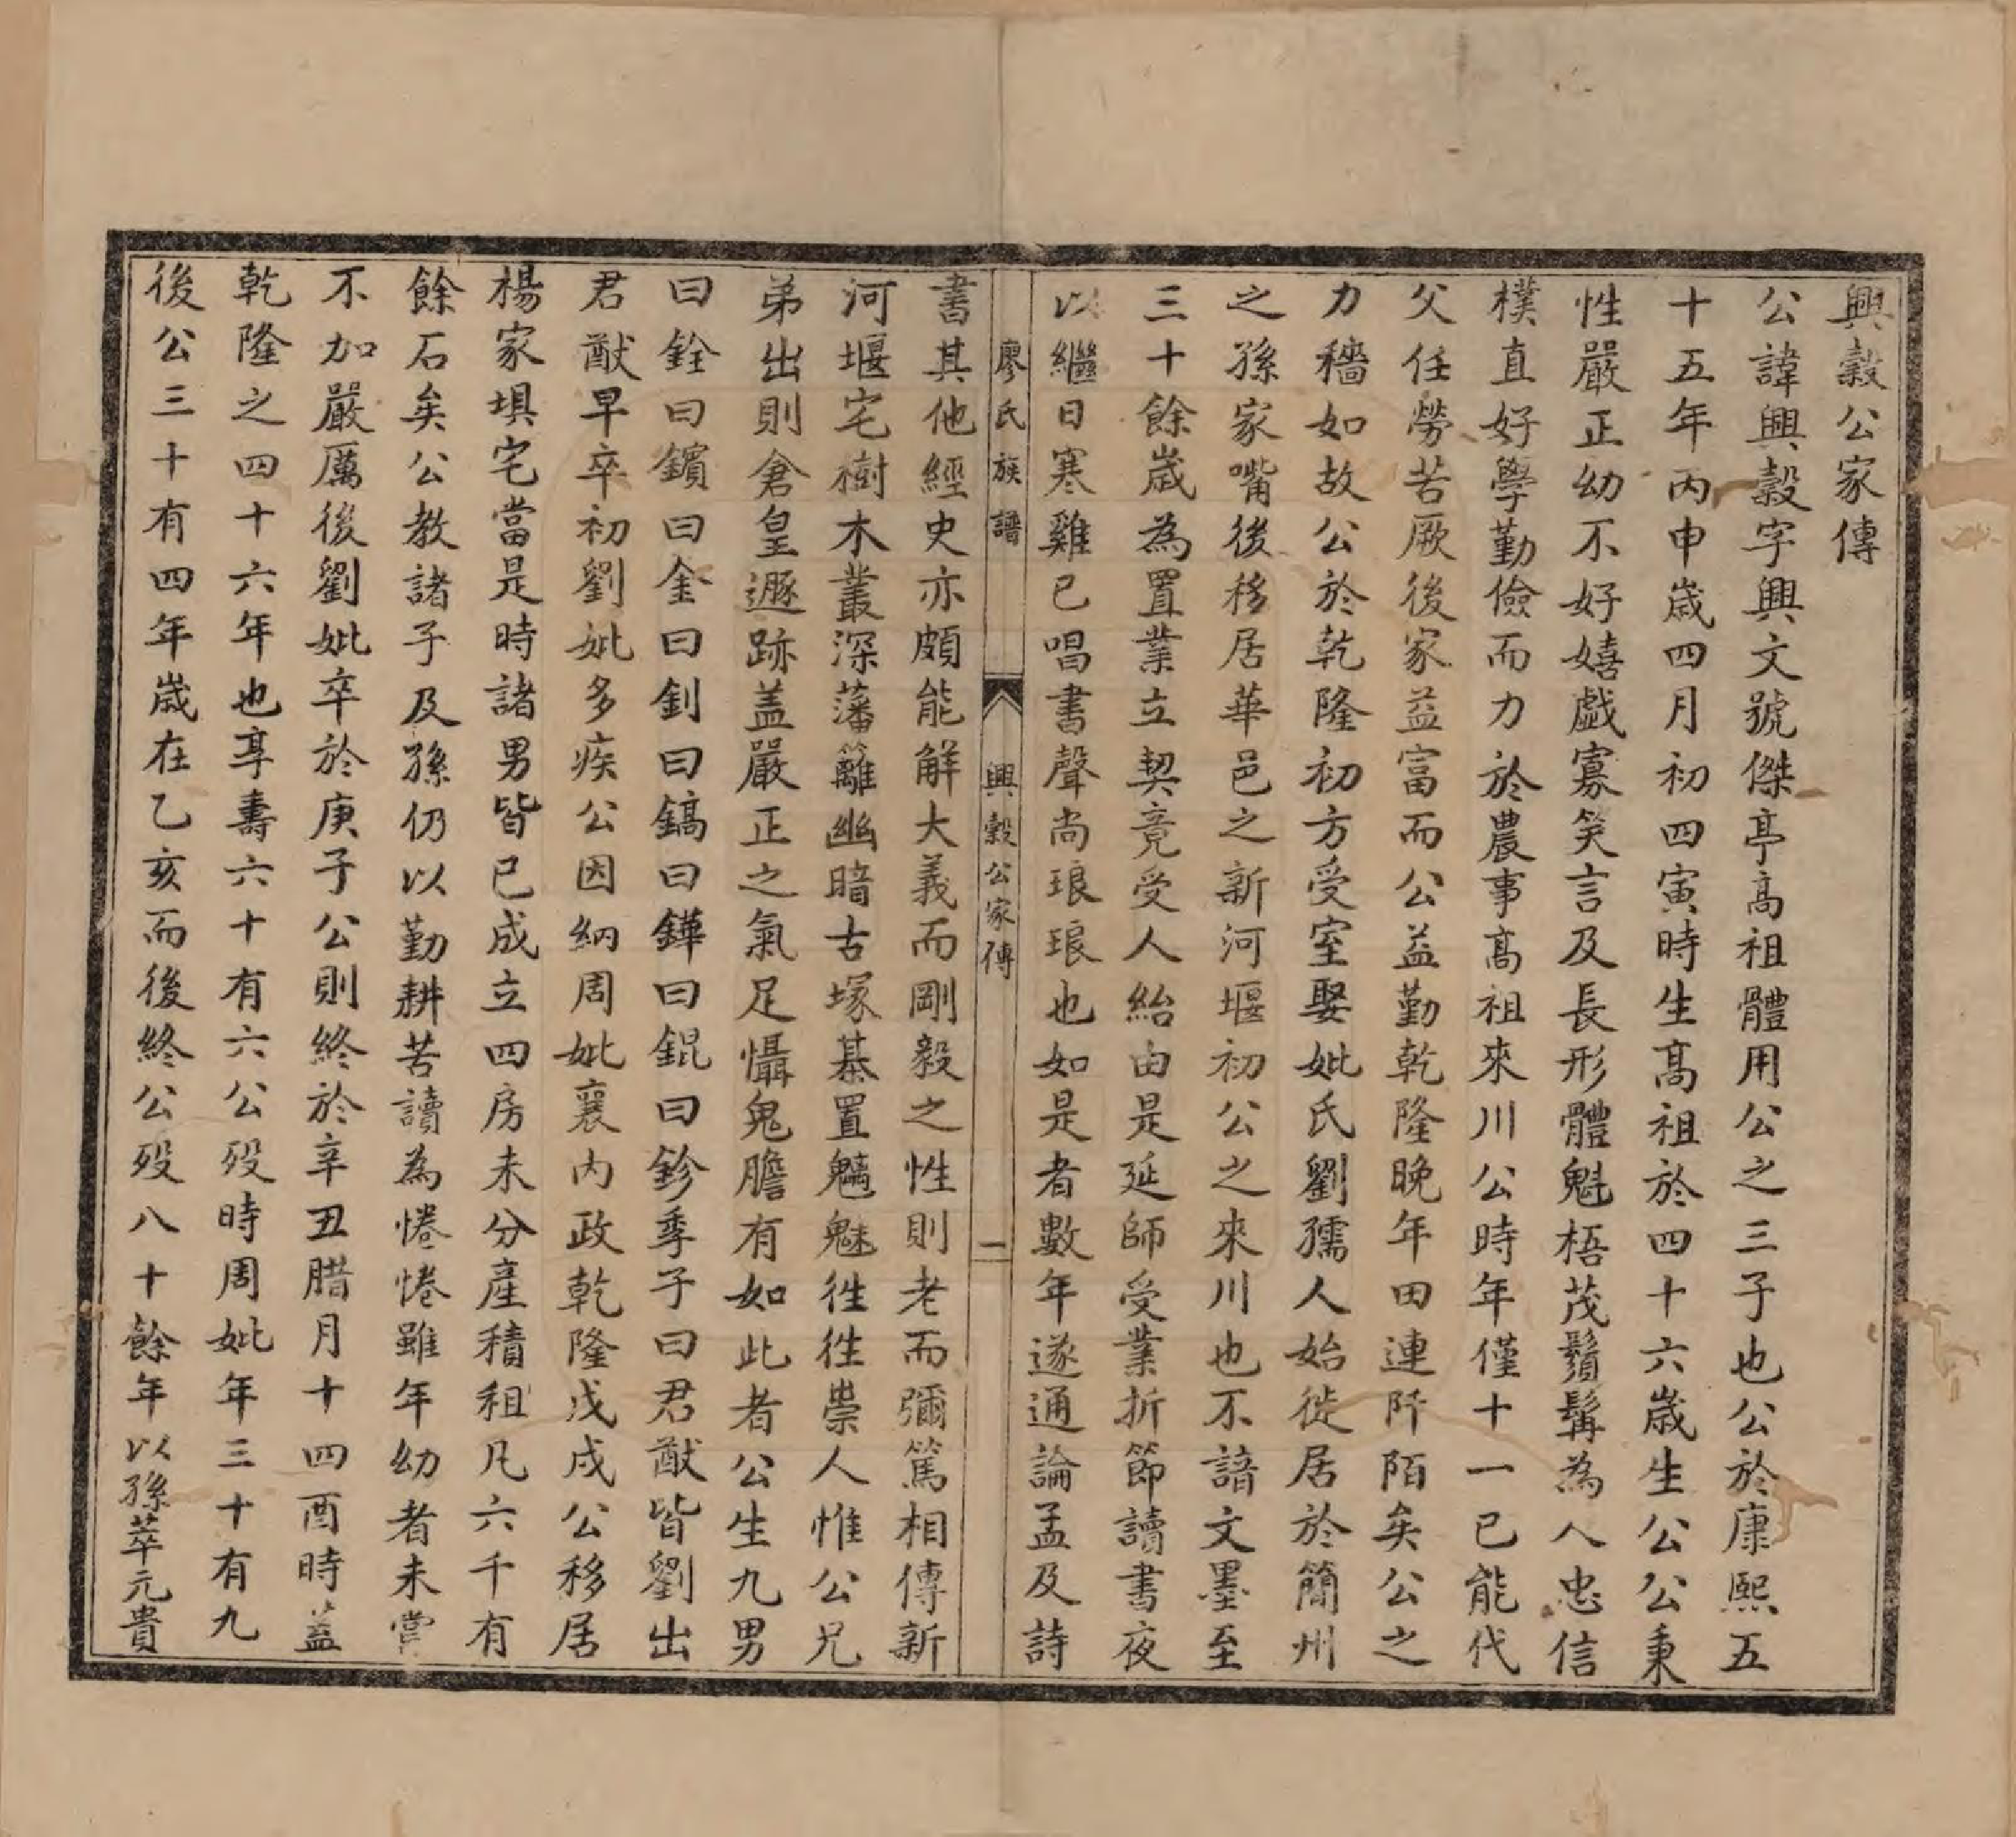 興穀公家傳
公諱興穀字興文號傑亭高祖體用公之三子也公於康熙五
十五年丙申歲四月初四寅時生高祖於四十六歲生公公秉
性嚴正幼不好嬉戲寡笑言及長形體魁梧茂鬚髯為人忠信
樸直好學勤儉而力於農事高祖來川公時年僅十一已能代
父任勞苦厥後家益富而公益勤乾隆晚年田連阡陌矣公之
力穡如故公於乾隆初方受室娶妣氏劉孺人始徙居於簡州
之孫家嘴後移居華邑之新河堰初公之來川也不諳文墨至
三十餘歲為置業立契竟受人紿由是延師受業折節讀書夜
以繼日寒雞已唱書聲尚琅琅也如是者數年遂通論孟及詩
廖氏族譜 興穀公家傳 一
書其他經史亦頗能解大義而剛毅之性則老而彌篤相傳新
河堰宅樹木叢深藩籬幽暗古塚棊置魑魅徃徃祟人惟公兄
弟出則倉皇遯跡盖嚴正之氣足懾鬼膽有如此者公生九男
曰銓曰鑌曰金曰釗曰鎬曰鏵曰錕曰鉁季子曰君猷皆劉出
君猷早卒初劉妣多疾公因納周妣襄內政乾隆戊戌公移居
楊家埧宅當是時諸男皆已成立四房未分產積租凡六千有
餘石矣公教諸子及孫仍以勤耕苦讀為惓惓雖年幼者未嘗
不加嚴厲後劉妣卒於庚子公則終於辛丑腊月十四酉時盖
乾隆之四十六年也享壽六十有六公歿時周妣年三十有九
後公三十有四年歲在乙亥而後終公歿八十餘年以孫萃元貴